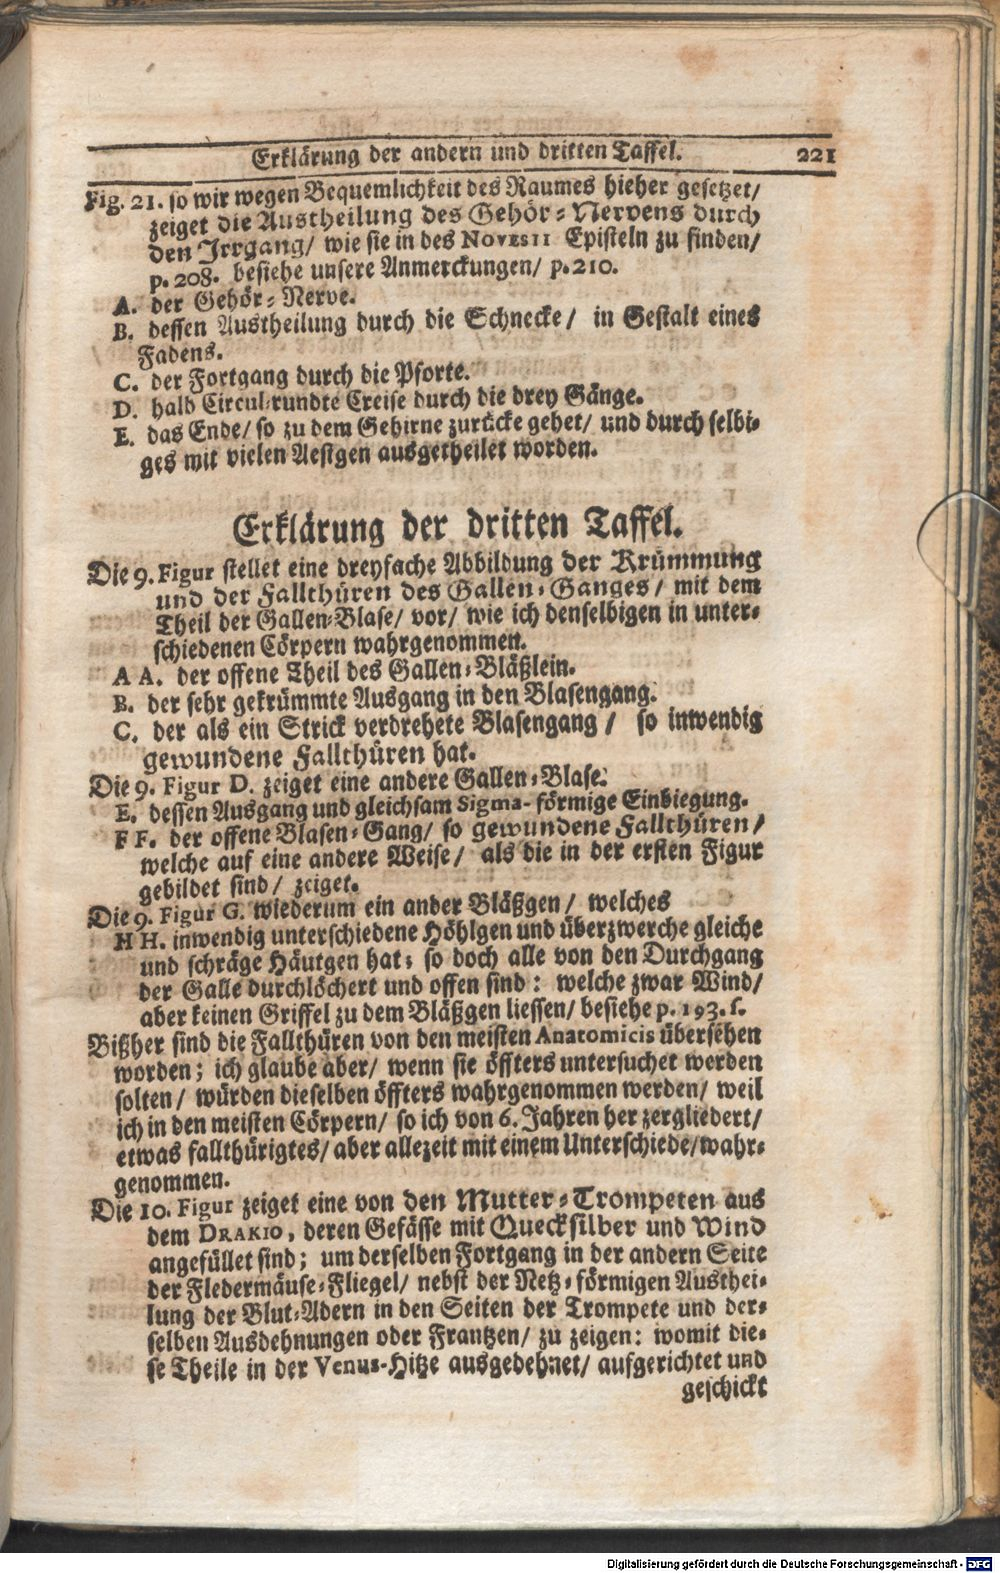 Erklärung der andern und dritten Taffel. 221
Fig. 21. so wir wegen Bequemlichkeit des Raumes hieher gesetzet/
zeiget die Austheilung des Gehör-Nervens durch
den Irrgang/ wie sie in des NOVESII Episteln zu finden/
p. 208. besiehe unsere Anmerckungen/ p. 210.
A. der Gehör-Nerve.
B. dessen Austheilung durch die Schnecke/ in Gestalt eines
Fadens.
C. der Fortgang durch die Pforte.
D. halb Circul-rundte Creise durch die drey Gänge.
E. das Ende/ so zu dem Gehirne zurücke gehet/ und durch selbi-
ges mit vielen Aestgen ausgetheilet worden.
Erklärung der dritten Taffel.
Die 9. Figur stellet eine dreyfache Abbildung der Krümmung
und der Fallthüren des Gallen-Ganges/ mit dem
Theil der Gallen-Blase/ vor/ wie ich denselbigen in unter-
schiedenen Cörpern wahrgenommen.
A A. der offene Theil des Gallen-Bläßlein.
B. der sehr gekrümmte Ausgang in den Blasengang.
C. der als ein Strick verdrehete Blasengang/ so inwendig
gewundene Fallthüren hat.
Die 9. Figur D. zeiget eine andere Gallen-Blase.
E. dessen Ausgang und gleichsam Sigma-förmige Einbiegung.
F F. der offene Blasen-Gang/ so gewundene Fallthüren/
welche auf eine andere Weise/ als die in der ersten Figur
gebildet sind/ zeiget.
Die 9. Figur G. wiederum ein ander Bläßgen/ welches
H H. inwendig unterschiedene Höhlgen und überzwerche gleiche
und schräge Häutgen hat; so doch alle von den Durchgang
der Galle durchlöchert und offen sind: welche zwar Wind/
aber keinen Griffel zu dem Bläßgen liessen/ besiehe p. 193. f.
Bißher sind die Fallthüren von den meisten Anatomicis übersehen
worden; ich glaube aber/ wenn sie öffters untersuchet werden
solten/ würden dieselben öffters wahrgenommen werden/ weil
ich in den meisten Cörpern/ so ich von 6. Jahren her zergliedert/
etwas fallthürigtes/ aber allezeit mit einem Unterschiede/ wahr-
genommen.
Die 10. Figur zeiget eine von den Mutter-Trompeten aus
dem DRAKIO, deren Gefässe mit Quecksilber und Wind
angefüllet sind; um derselben Fortgang in der andern Seite
der Fledermäuse-Fliegel/ nebst der Netz-förmigen Austhei-
lung der Blut-Adern in den Seiten der Trompete und der-
selben Ausdehnungen oder Frantzen/ zu zeigen: womit die-
se Theile in der Venus-Hitze ausgedehnet/ aufgerichtet und
geschickt
Digitalisierung gefördert durch die Deutsche Forschungsgemeinschaft - DFG